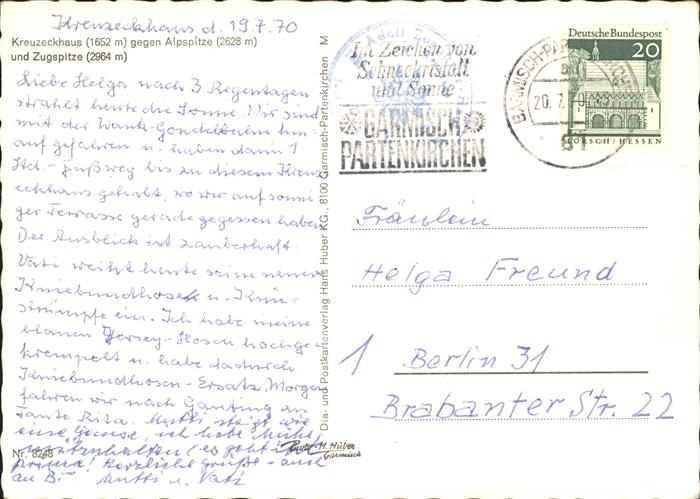 Kreuzeckhaus, d. 19.7.70
Kreuzeckhaus (1652 m) gegen Alpspitze (2628 m)
und Zugspitze (2964 m)
Liebe Helga nach 3 Regentagen
strahlt heute die Sonne. Wir sind
mit der Wank-Gondelbahn hin-
aufgefahren u. haben dann 1
Std. Fußweg bis zu diesem Kreuz
eckhaus gehabt, wo wir auf sonni
ger Terrasse gerade gegessen haben
Der Ausblick ist zauberhaft.
Vati weiht heute seine neuen
Kniebundhosen u. Knie-
strümpfe ein. Ich habe meine
blauen Jersey-Hosen hochge-
krempelt u. habe dadurch
Kniebundhosen-Ersatz. Morgen
fahren wir nach Gauting zu
Tante Rita. Mutti steigt wie
eine Gemse, ich habe Mühe
mitzuhalten (es geht
prima! Herzliche Grüße - auch
an B. Mutti u. Vati
Nr. 8248
H. Huber
Garmisch
Dia- und Postkartenverlag Hans Huber KG., 8100 Garmisch-Partenkirchen M
Im Zeichen von
Schneekristall
und Sonne
GARMISCH
PARTENKIRCHEN
GARMISCH-PARTENKIRCHEN
20.7.
Deutsche Bundespost
20
LORSCH/HESSEN
Fräulein
Helga Freund
1 Berlin 31
Brabanter Str. 22